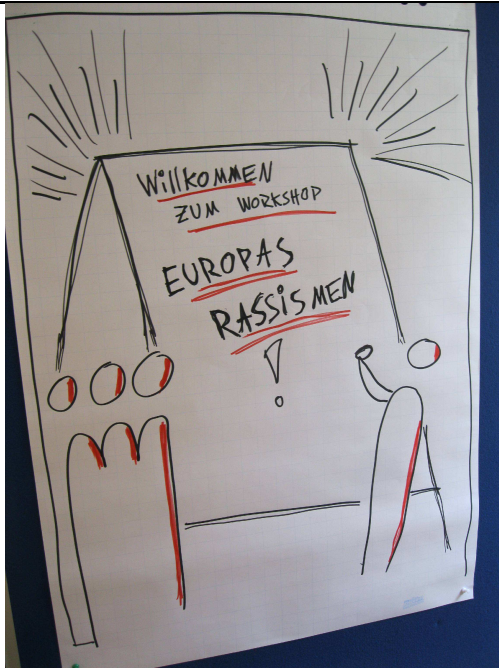 WillKOMMEN
ZUM WORKSHOP
EUROPAS
RASSiSMEN
!